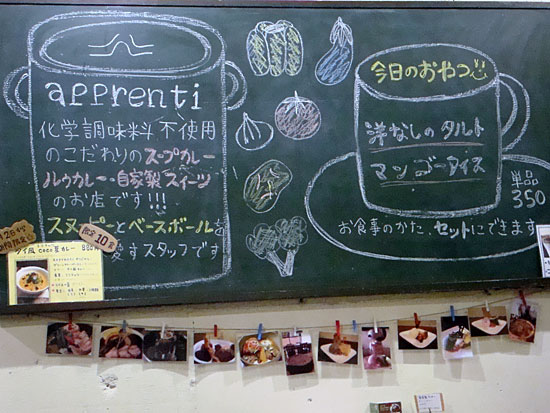 apprenti
化学調味料不使用
のこだわりのスープカレー
ルゥカレー・自家製スイーツ
のお店です!!!
スヌーピーとベースボールを
愛すスタッフです
限定10食
880円
今日のおやつ
洋なしのタルト
マンゴーアイス
単品
350
お食事のかた、セットにできます